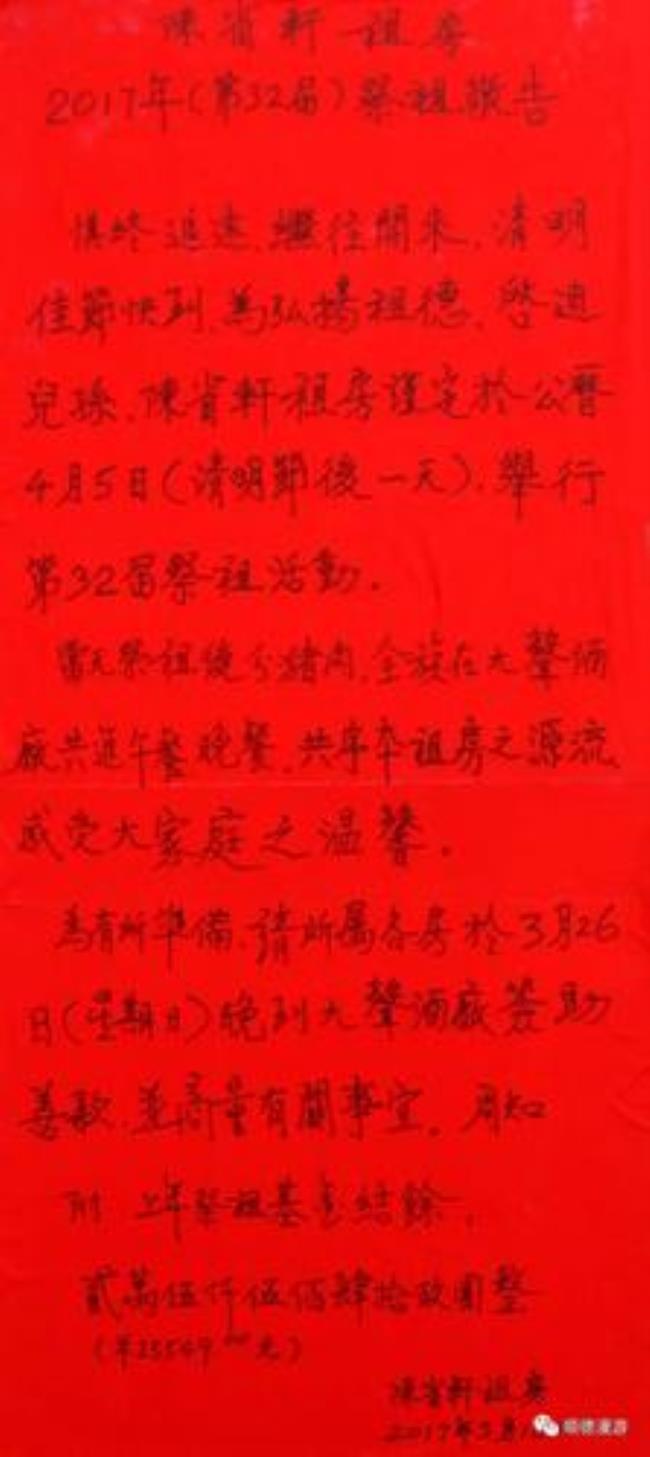 陳省軒祖房
2017年(第32届)祭祖敬告
慎終追遠、繼往開來、清明
佳節快到、為弘揚祖德、啓迪
兒孫、陳省軒祖房謹定於公曆
4月5日(清明節後一天)、舉行
第32届祭祖活動.
當天祭祖後分豬肉、全族在大聲酒
廠共進午餐晚餐、共享本祖房之源流
感受大家庭之温馨.
為有所準備、請所屬各房於3月26
日(星期日)晚到大聲酒廠簽助
善款、並商量有關事宜. 周知
附 上年祭祖基金結餘.
貳萬伍仟伍佰肆拾玖圓整
(¥25549.00元)
陳省軒祖房
2017年3月
順德漫游